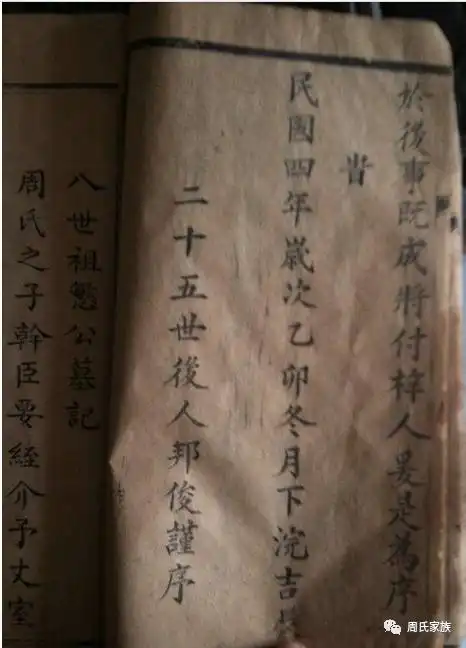 於後事既成將付梓人爰是為序
旹
民國四年歲次乙卯冬月下浣吉
二十五世後人邦俊謹序
八世祖慜公墓記
周氏之子幹臣要經介予丈室
周氏家族